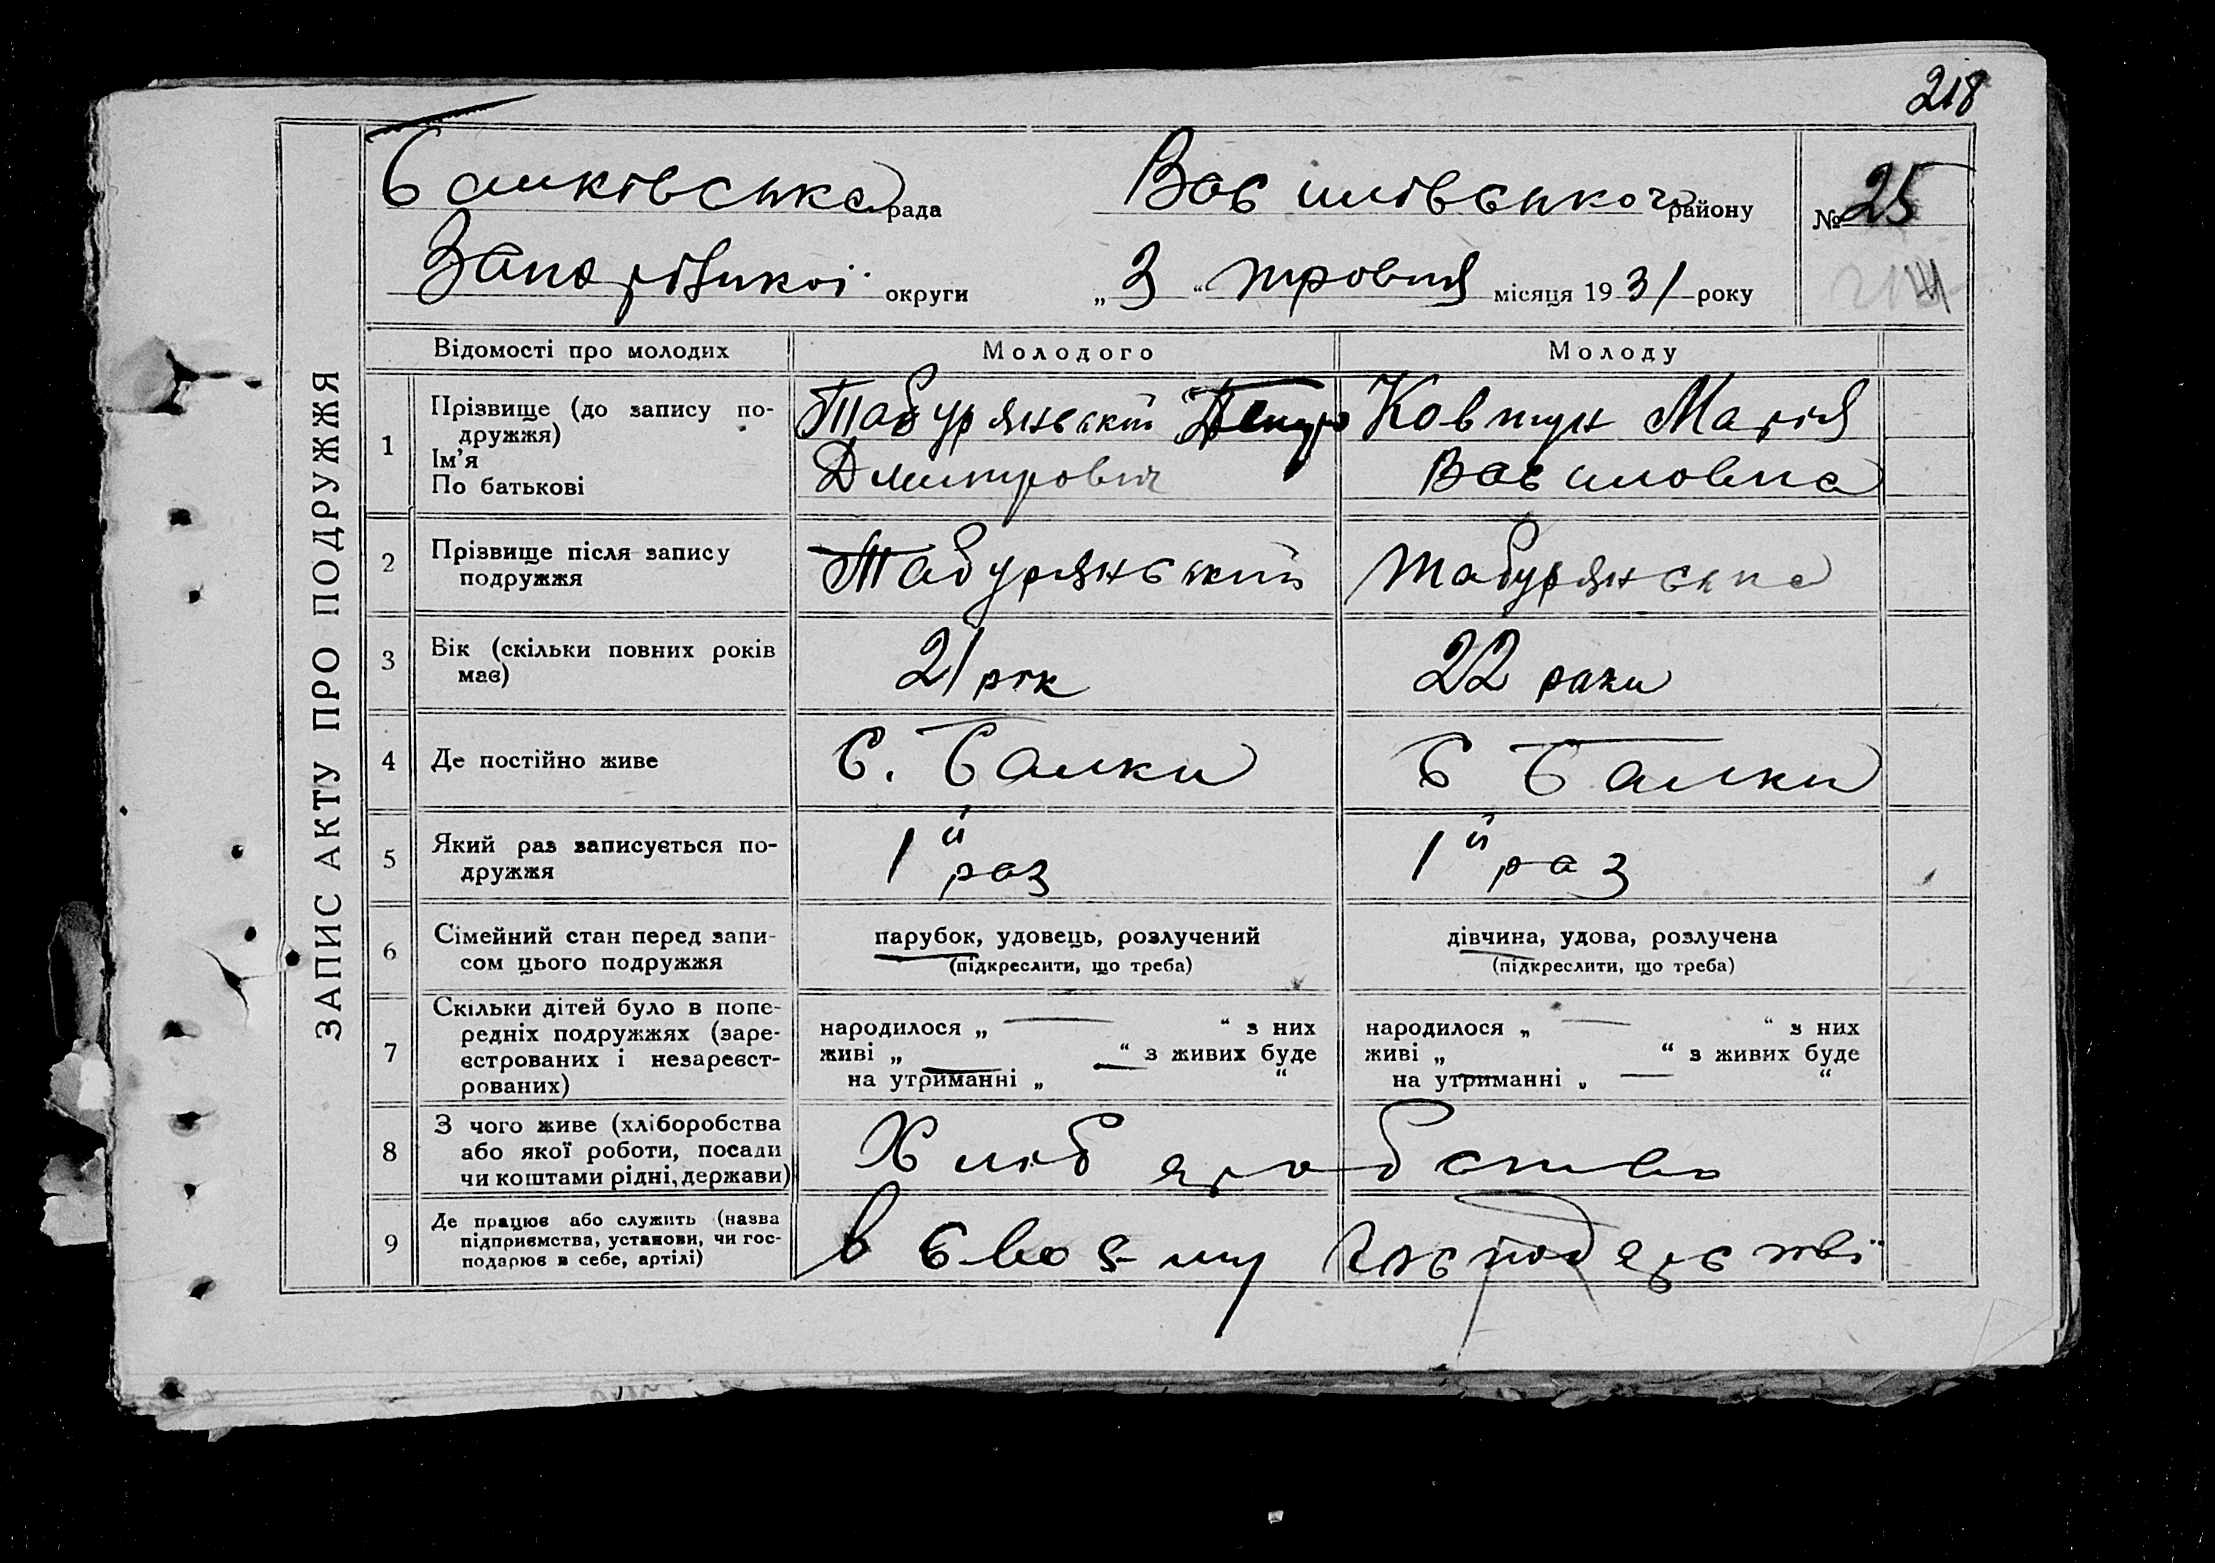 218
ЗАПИС АКТУ ПРО ПОДРУЖЖЯ
Балківська рада Василівського району № 25
Запорізької округи „ 3 “ травня місяця 19 31 року
Відомості про молодих Молодого Молоду
1 Прізвище (до запису по-
дружжя)
Ім’я
По батькові
Табурянський Петро
Дмитрович
Ковтун Марія
Василовна
2 Прізвище після запису
подружжя
Табурянський
Табурянська
3 Вік (скільки повних років
має)
21 рік
22 роки
4 Де постійно живе
С. Балки
С Балки
5 Який раз записується по-
дружжя
1й раз
1й раз
6 Сімейний стан перед запи-
сом цього подружжя
парубок, удовець, розлучений
(підкреслити, що треба)
дівчина, удова, розлучена
(підкреслити, що треба)
7 Скільки дітей було в попе-
редніх подружжях (заре-
єстрованих і незареєст-
рованих)
народилося „ — “ з них
живі „ — “ з живих буде
на утриманні „ — “
народилося „ — “ з них
живі „ — “ з живих буде
на утриманні „ — “
8 З чого живе (хліборобства
або якої роботи, посади
чи коштами рідні, держави)
Хліборобство
9 Де працює або служить (назва
підприємства, установи, чи гос-
подарює в себе, артілі)
в своєму господарстві